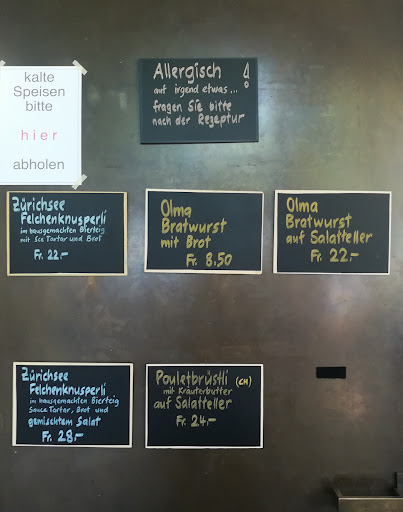 kalte
Speisen
bitte
hier
abholen
Allergisch !
auf irgend etwas...
fragen Sie bitte
nach der Rezeptur
Zürichsee
Felchenknusperli
im hausgemachten Bierteig
mit Sce Tartar und Brot
Fr. 22.-
Olma
Bratwurst
mit Brot
Fr. 8.50
Olma
Bratwurst
auf Salatteller
Fr. 22.-
Zürichsee
Felchenknusperli
im hausgemachten Bierteig
Sauce Tartar, Brot und
gemischtem Salat
Fr. 28.-
Pouletbrüstli (CH)
mit Kräuterbutter
auf Salatteller
Fr. 24.-